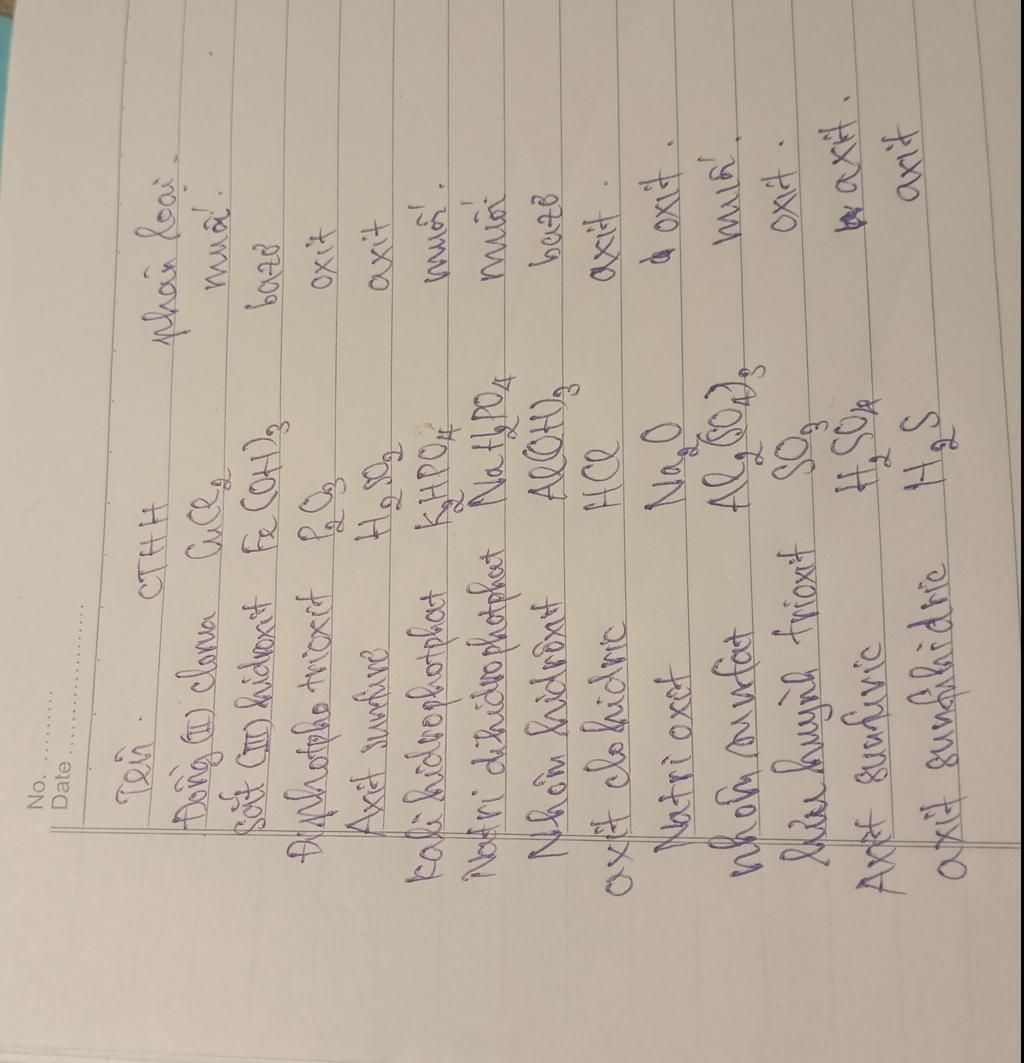 No. ............
Date ........................
Tên. CTHH phân loại.
Đồng (II) clorua CuCl2 muối.
Sắt (III) hidroxit Fe(OH)3 bazơ
Điphotpho trioxit P2O3 oxit
Axit sunfurơ H2SO2 axit
Kali hidrophotphat K2HPO4 muối.
Natri dihidrophotphat NaH2PO4 muối
Nhôm hidrôxit Al(OH)3 bazơ
axit clohidric HCl axit.
Natri oxit Na2O oxit.
nhôm sunfat Al2(SO4)3 muối.
lưu huỳnh trioxit SO3 oxit.
Axit sunfuric H2SO4 axit.
axit sunfuhidric H2S axit